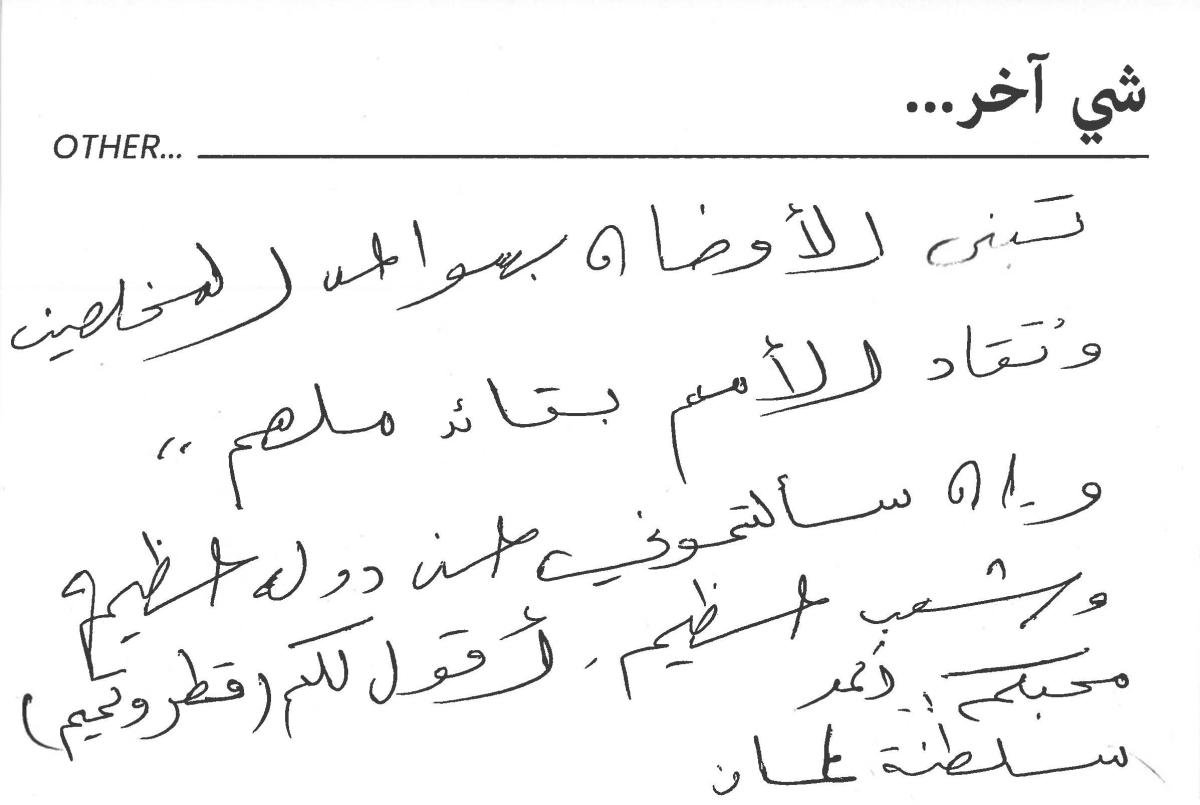 شي آخر...
OTHER...
تبنى الأوطان بسواعد المخلصين
وتُقاد الأمم بقائد ملهم ،،
وإن سألتموني عن دولة عظيمة
وشعب عظيم، أقول لكم (قطر وتميم)
محبكم: أحمد
سلطنة عمان